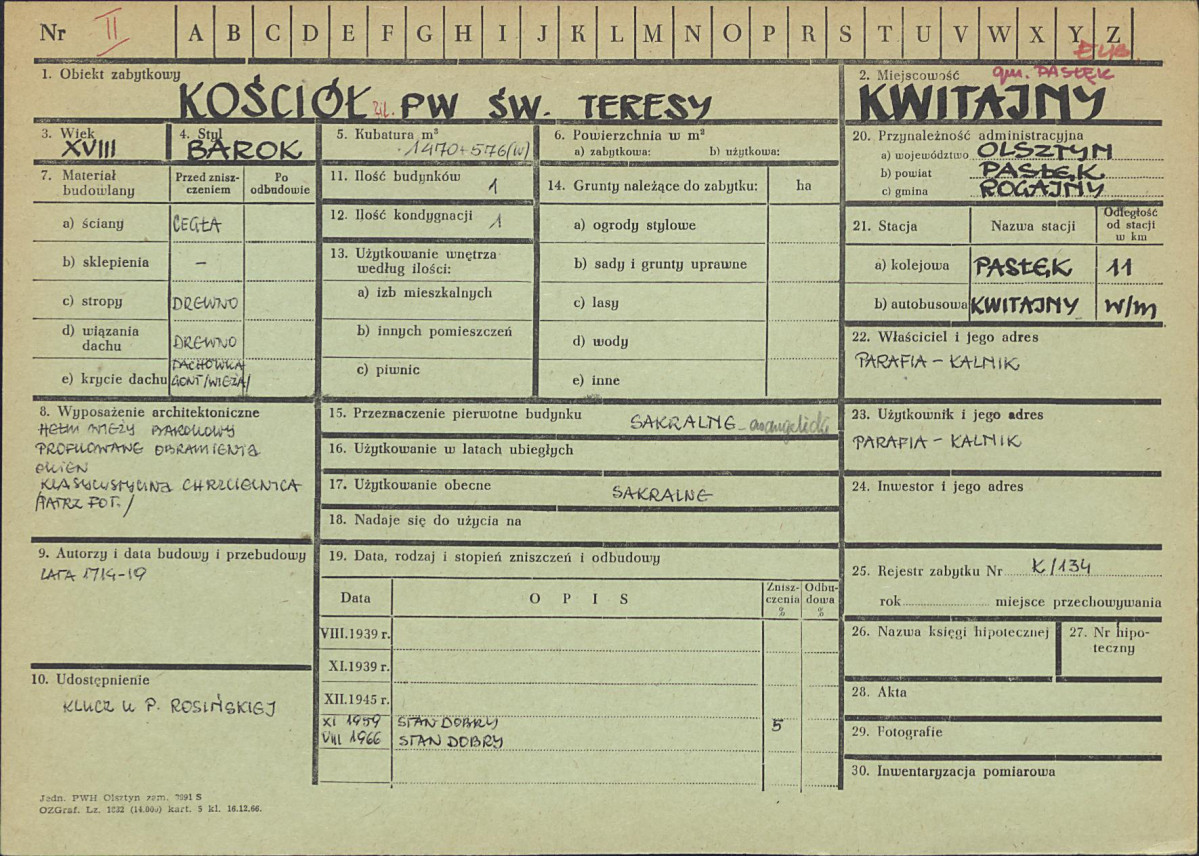 Nr II A B C D E F G H I J K L M N O P R S T U V W X Y Z
ELB.
1. Obiekt zabytkowy
KOŚCIÓŁ fil. PW ŚW. TERESY
2. Miejscowość gm. PASŁĘK
KWITAJNY
3. Wiek
XVIII
4. Styl
BAROK
5. Kubatura m³
1470+576(w)
6. Powierzchnia w m²
a) zabytkowa: b) użytkowa:
7. Materiał budowlany
Przed znisz-
czeniem
Po
odbudowie
a) ściany CEGŁA
b) sklepienia –
c) stropy DREWNO
d) wiązania
dachu DREWNO
e) krycie dachu DACHÓWKA
GONT/WIEŻA/
8. Wyposażenie architektoniczne
HEŁM WIEŻY BAROKOWY
PROFILOWANE OBRAMIENIA
OKIEN
KLASYCYSTYCZNA CHRZCIELNICA
/PATRZ FOT./
9. Autorzy i data budowy i przebudowy
LATA 1714-19
10. Udostępnienie
KLUCZ U P. ROSIŃSKIEJ
11. Ilość budynków 1
12. Ilość kondygnacji 1
13. Użytkowanie wnętrza
według ilości:
a) izb mieszkalnych
b) innych pomieszczeń
c) piwnic
14. Grunty należące do zabytku: ha
a) ogrody stylowe
b) sady i grunty uprawne
c) lasy
d) wody
e) inne
15. Przeznaczenie pierwotne budynku SAKRALNE - ewangelicki
16. Użytkowanie w latach ubiegłych
17. Użytkowanie obecne SAKRALNE
18. Nadaje się do użycia na
19. Data, rodzaj i stopień zniszczeń i odbudowy
Data OPIS
Znisz-
czenia
%
Odbu-
dowa
%
VIII.1939 r.
XI.1939 r.
XII.1945 r.
XI 1959 STAN DOBRY 5
VIII 1966 STAN DOBRY
20. Przynależność administracyjna
a) województwo OLSZTYN
b) powiat PASŁĘK
c) gmina ROGAJNY
21. Stacja Nazwa stacji
Odległość
od stacji
w km
a) kolejowa PASŁĘK 11
b) autobusowa KWITAJNY w/m
22. Właściciel i jego adres
PARAFIA - KALNIK
23. Użytkownik i jego adres
PARAFIA - KALNIK
24. Inwestor i jego adres
25. Rejestr zabytku Nr K/134
rok miejsce przechowywania
26. Nazwa księgi hipotecznej
27. Nr hipo-
teczny
28. Akta
29. Fotografie
30. Inwentaryzacja pomiarowa
Jedn. PWH Olsztyn zam. S
OZGraf. Lz. kart. 5 kl. 16.12.66.